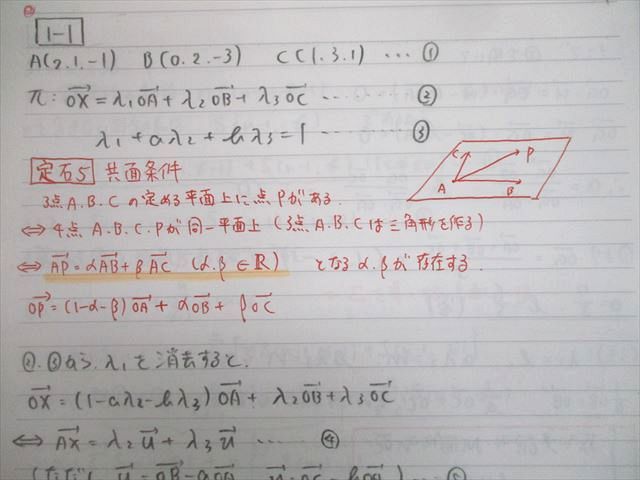 1-1
A(2.1.-1) B(0.2.-3) C(1.3.1) … ①
π: OX→ = λ1OA→ + λ2OB→ + λ3OC→ … ②
λ1 + aλ2 + bλ3 = 1 … ③
定石5 共面条件
3点A.B.Cの定める平面上に点Pがある.
⇔ 4点A.B.C.Pが同一平面上 (3点A.B.Cは三角形を作る)
⇔ AP→ = αAB→ + βAC→ (α.β ∈ ℝ) となるα.βが存在する.
OP→ = (1-α-β)OA→ + αOB→ + βOC→
C P
A B
②.③から.λ1を消去すると.
OX→ = (1-aλ2-bλ3)OA→ + λ2OB→ + λ3OC→
⇔ AX→ = λ2u→ + λ3u→ … ④
(ただし u→ = OB→ - aOA→ u→ = OC→ - bOA→) … ⑤